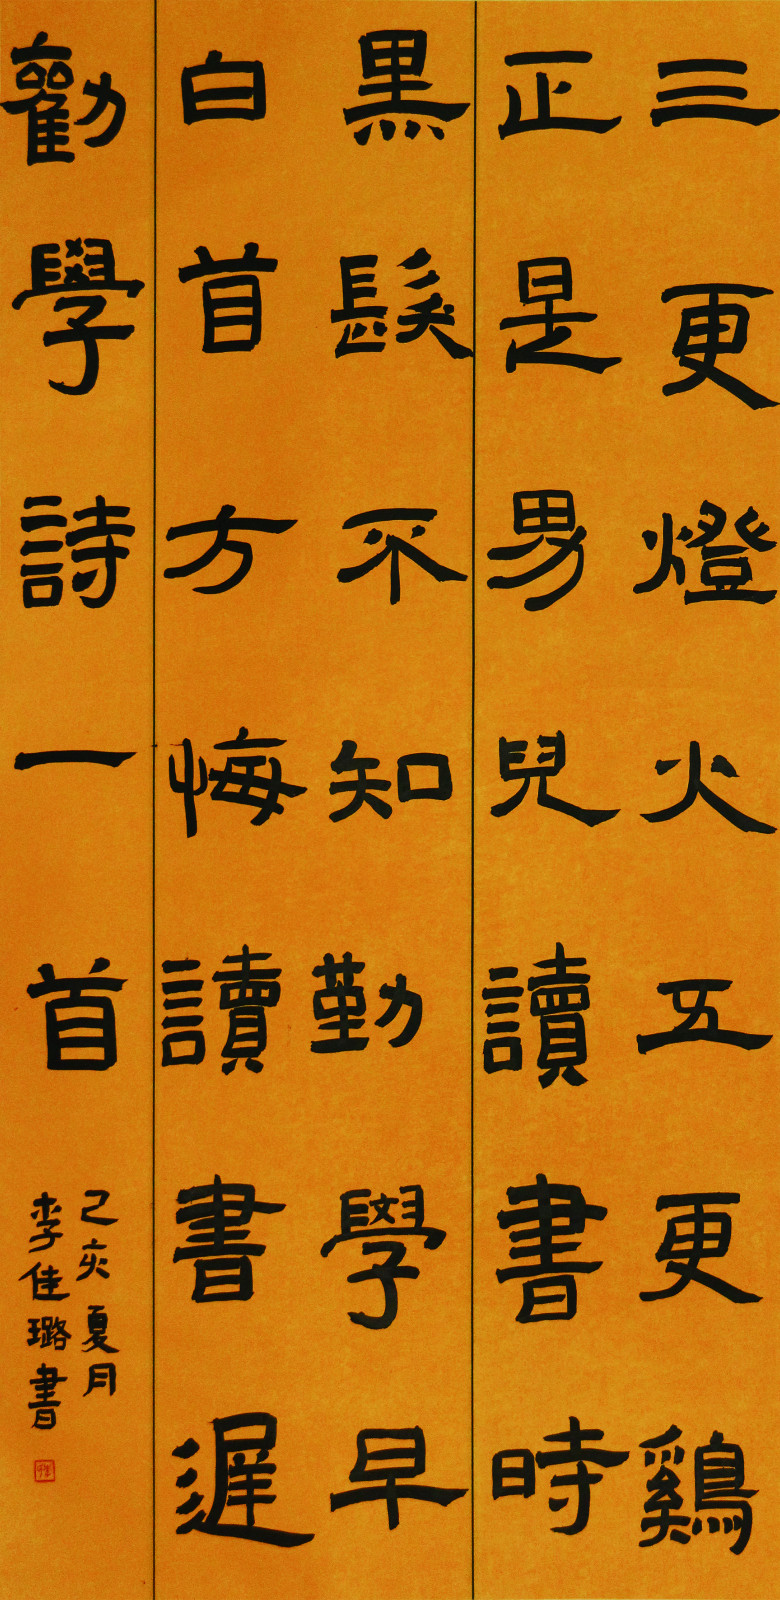 三更燈火五更鷄
正是男兒讀書時
黑髮不知勤學早
白首方悔讀書遲
勸學詩一首
己亥夏月
李佳璐書